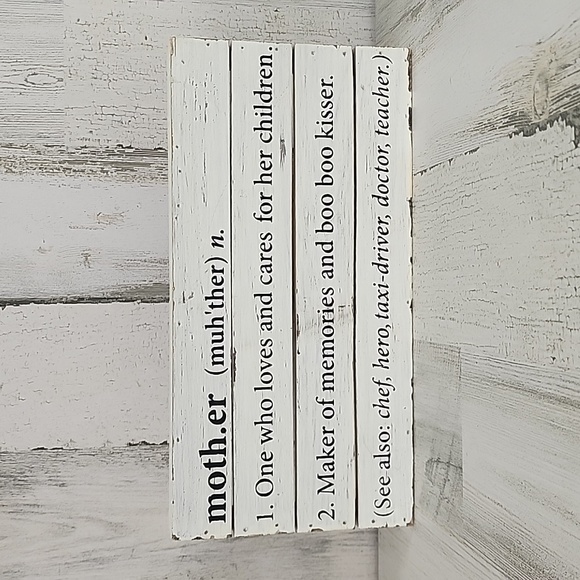 moth.er (muh'ther) n.
1. One who loves and cares for her children.
2. Maker of memories and boo boo kisser.
(See also: chef, hero, taxi-driver, doctor, teacher.)